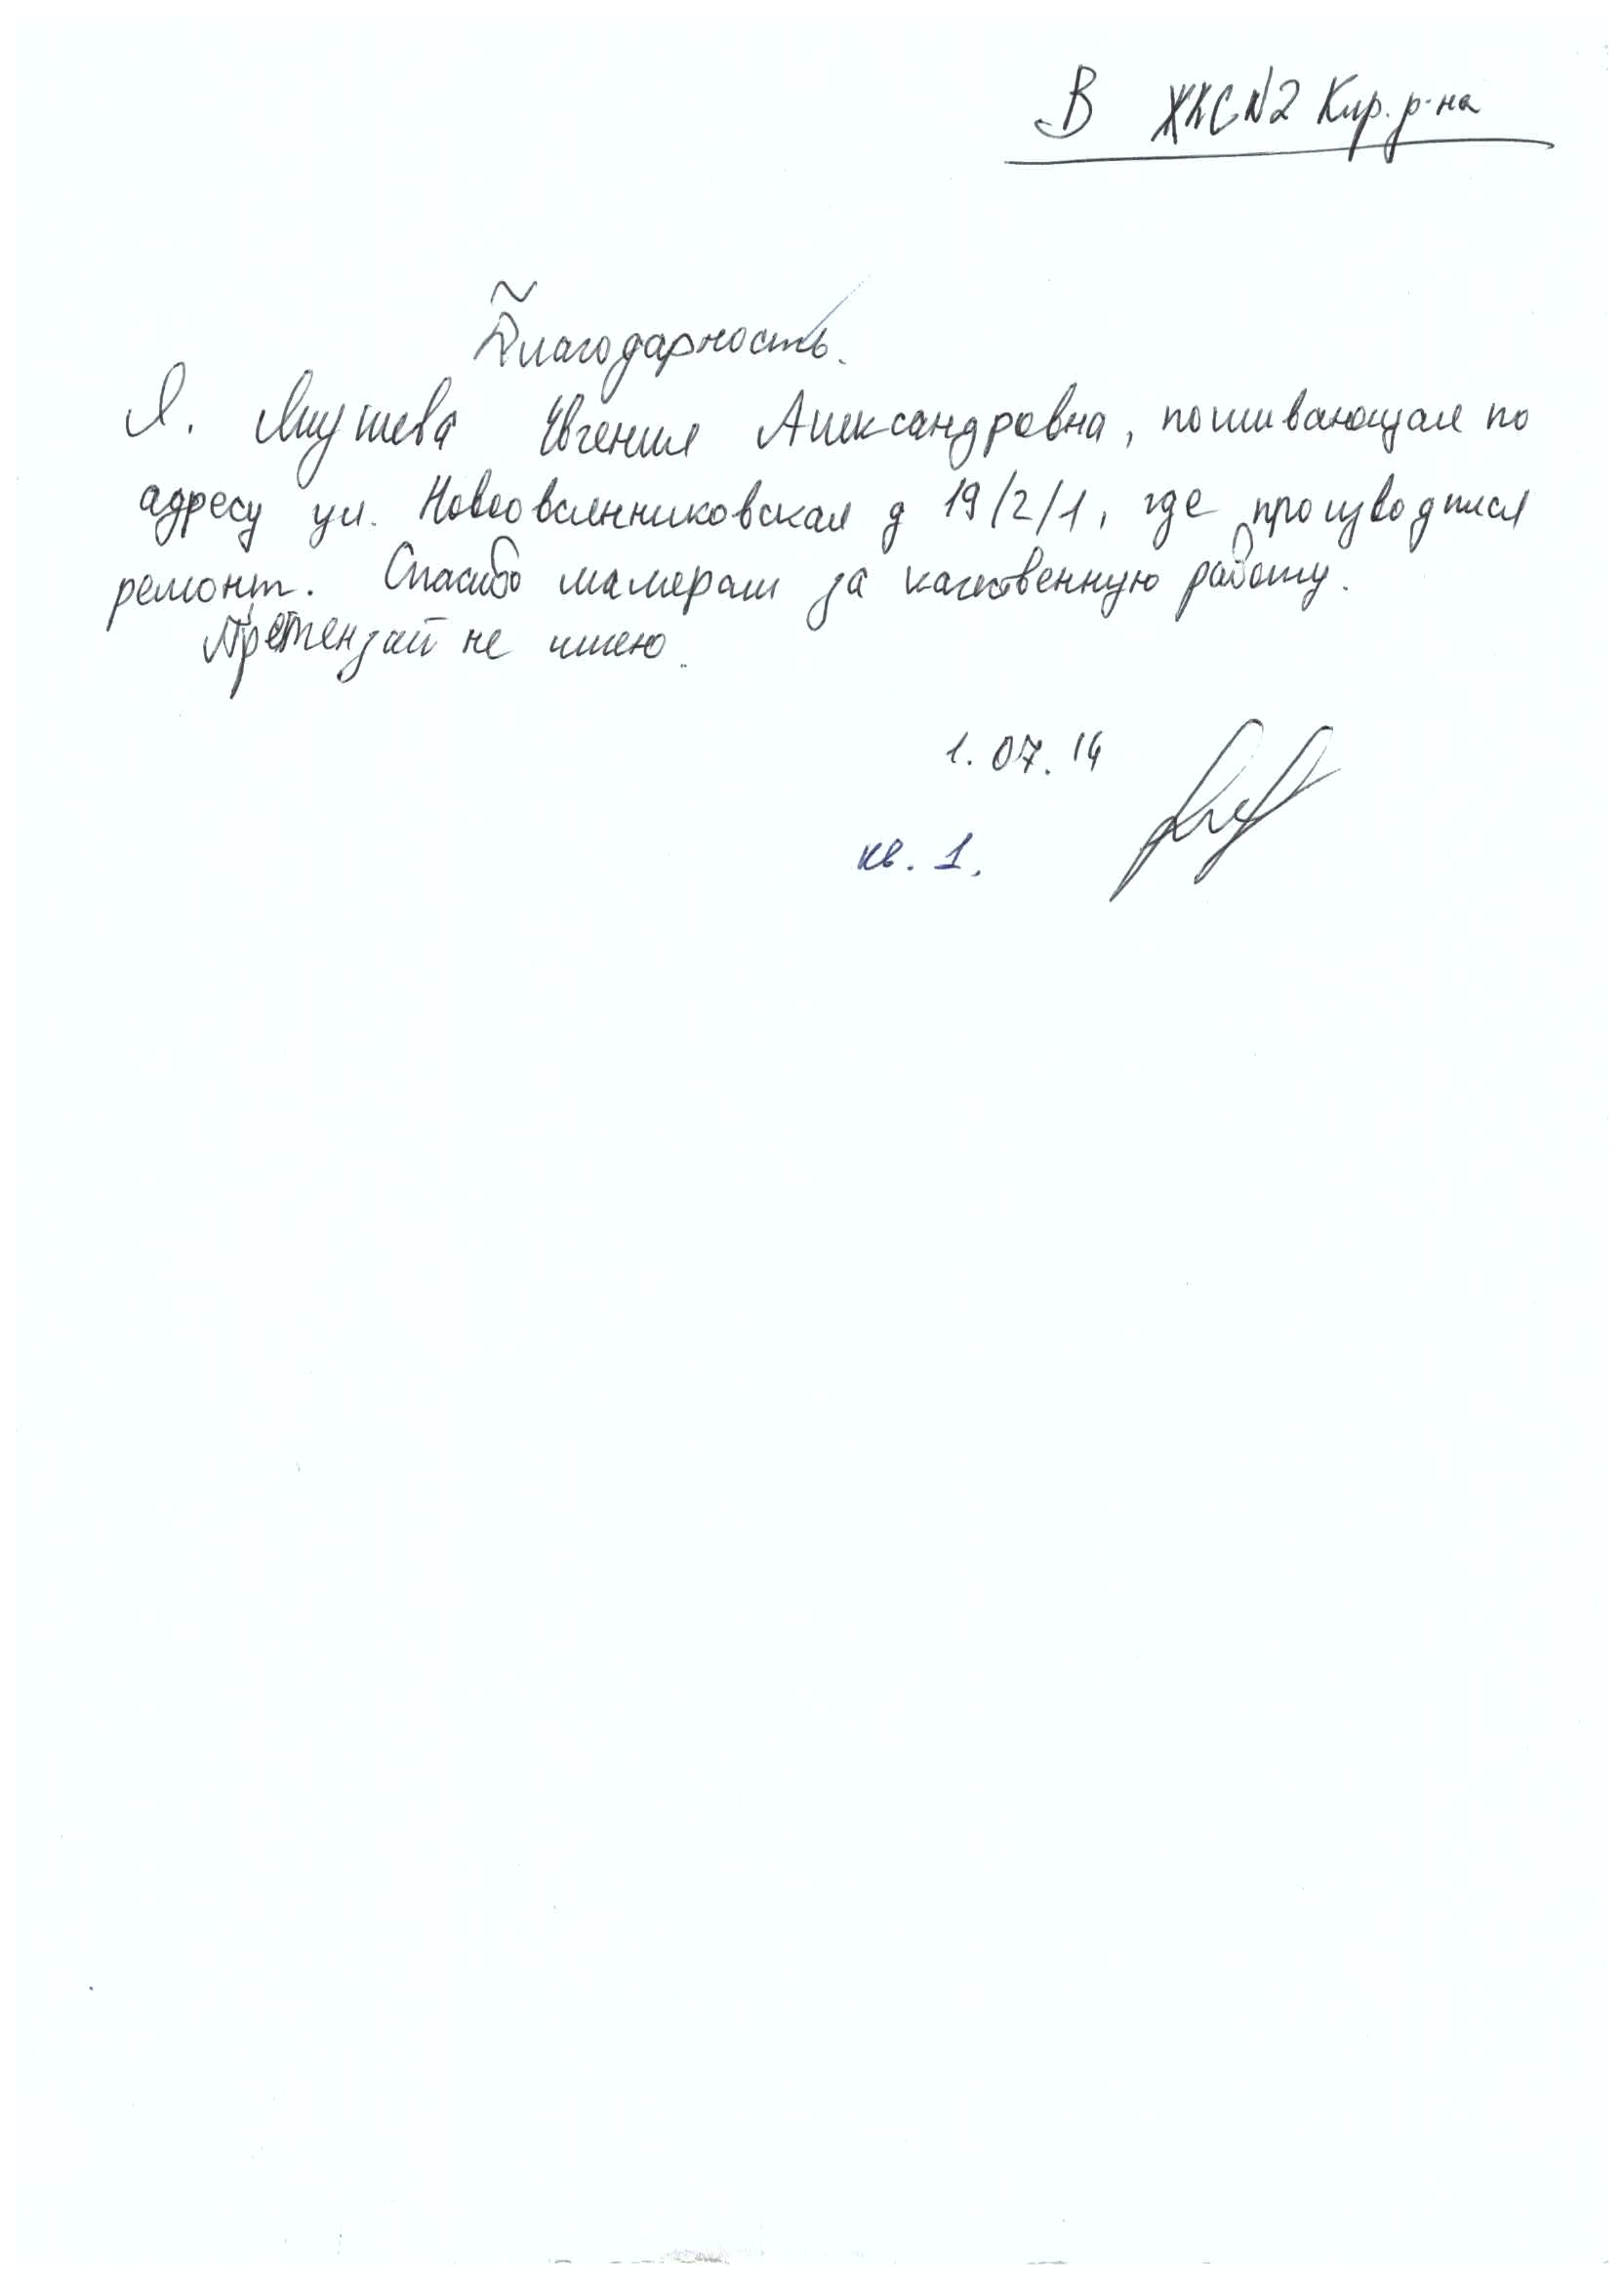 В ЖКС №2 Кир. р-на
Благодарность.
Я. Евгения Александровна, по
адресу ул. Новоовсянниковская д 19/2/1, где производился
ремонт. Спасибо малярам за качественную работу.
Претензий не имею.
1.07.14
кв. 1.